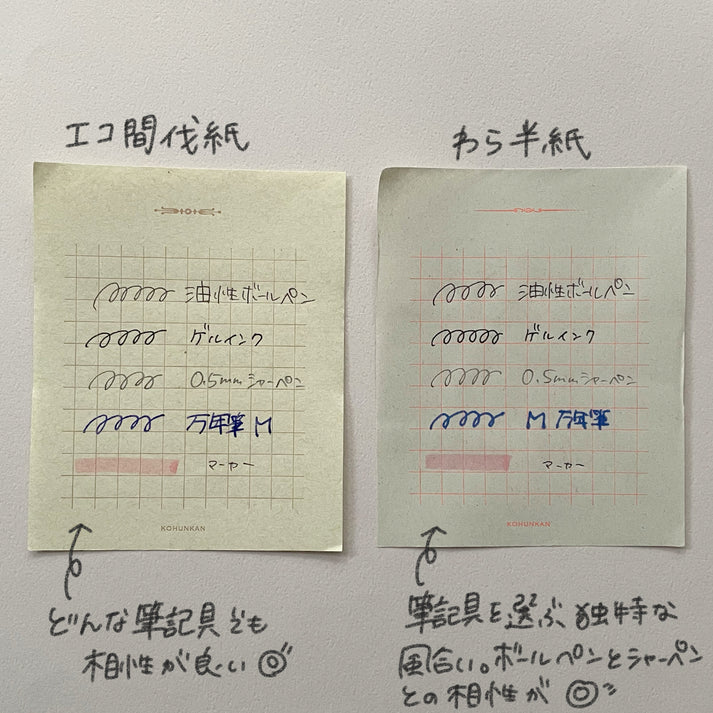 エコ間伐紙
油性ボールペン
ゲルインク
0.5mmシャーペン
万年筆 M
マーカー
KOHUNKAN
どんな筆記具でも
相性が良い◎
わら半紙
油性ボールペン
ゲルインク
0.5mmシャーペン
M 万年筆
マーカー
KOHUNKAN
筆記具を選ぶ独特な
風合い。ボールペンとシャーペン
との相性が◎